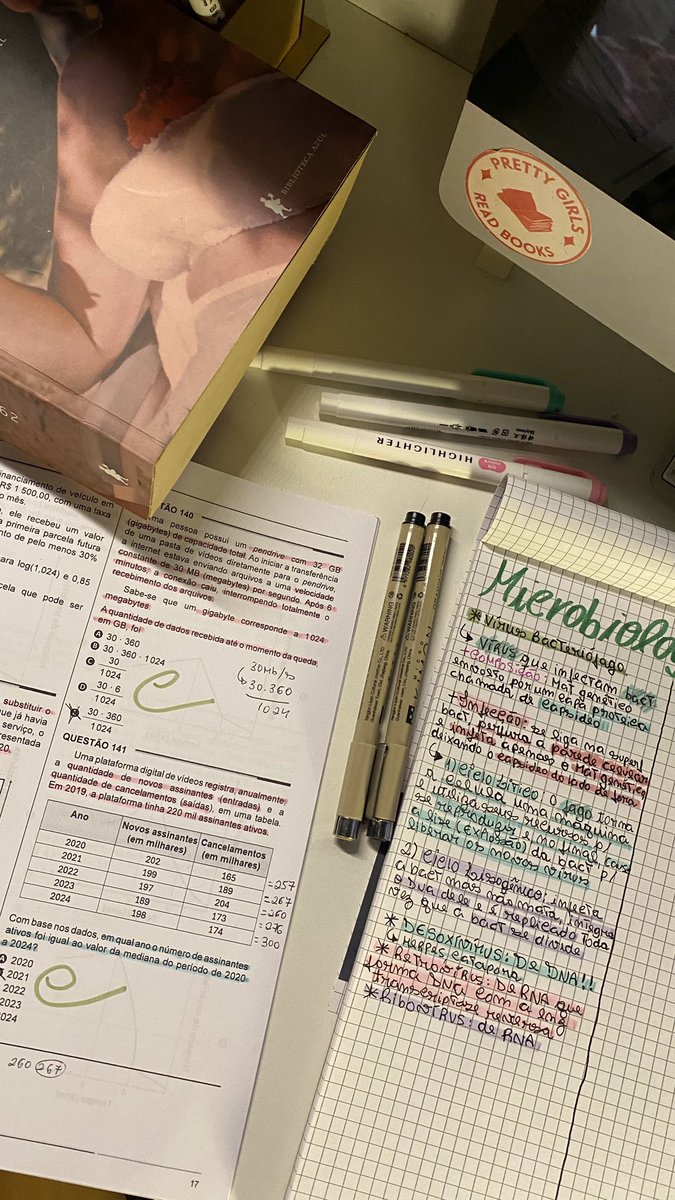 BIBLIOTECA AZUL
PRETTY GIRLS
READ BOOKS
HIGHLIGHTER
inanciamento de veículo em
R$ 1 500,00, com uma taxa
o mês.
, ele recebeu um valor
primeira parcela futura
nto de pelo menos 30%
para log(1,024) e 0,85
cela que pode ser
substituir o
que já havia
serviço, o
resentada
20.
TÃO 140
ma pessoa possui um pendrive com 32 GB
(gigabytes) de capacidade total. Ao iniciar a transferência
de uma pasta de vídeos diretamente para o pendrive,
a internet estava enviando arquivos a uma velocidade
constante de 30 MB (megabytes) por segundo. Após 6
minutos, a conexão caiu, interrompendo totalmente o
recebimento dos arquivos.
Sabe-se que um gigabyte corresponde a 1024
megabytes.
A quantidade de dados recebida até o momento da queda,
em GB, foi
A 30 · 360
B 30 · 360 · 1024
C 30
1024
D 30 · 6
1024
30 · 360
1024
30Mb/s
↳ 30.360
1024
QUESTÃO 141
Uma plataforma digital de vídeos registra, anualmente
a quantidade de novos assinantes (entradas) e a
quantidade de cancelamentos (saídas), em uma tabela.
Em 2019, a plataforma tinha 220 mil assinantes ativos.
Ano Novos assinantes (em milhares) Cancelamentos (em milhares)
2020 202 165 =257
2021 199 189 =267
2022 197 204 =260
2023 189 173 =276
2024 198 174 =300
Com base nos dados, em qual ano o número de assinantes
ativos foi igual ao valor da mediana do período de 2020
a 2024?
A 2020
2021
2022
2023
2024
260 267
17
Microbiolog
* Vírus Bacteriófago
↳ VÍRUS que infectam bact
+COMPOSIÇÃO: Mat genético
envolto por um capa proteica
chamada de capsídeo
+ Infecção: se liga na superf
bact, perfura a parede celular
e injeta apenas o Mat genético
deixando o capsídeo do lado de fora.
↳ 1) Ciclo lítico: O fago torna
a célula uma máquina
e utiliza seus recursos p/
se reproduzir e no final causa
a lise (EXPLOSÃO) da bact p/
liberar os novos vírus
2) Ciclo lisogênico: infecta
a bact mas não mata, integra
o DNA dele e é replicado toda
vez que a bact se divide
* DESOXIVIRUS: De DNA!!
↳ herpes, catapora
* RETROVÍRUS: De RNA que
forma DNA com a enz
transcriptase reversa
* Ribovírus: de RNA